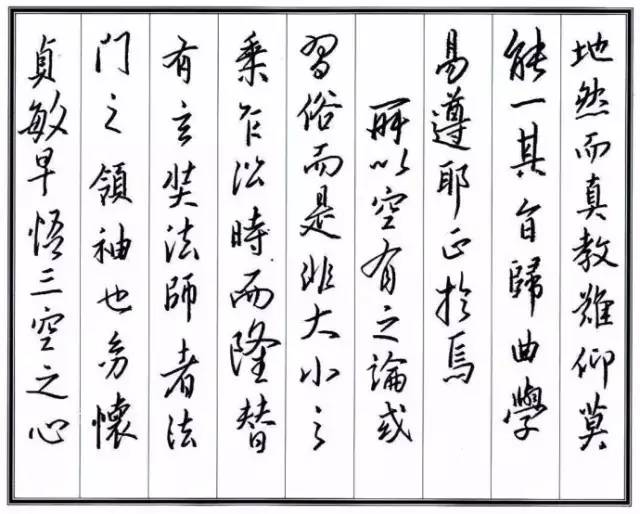 地然而真教難仰莫
能一其旨歸曲學
易遵耶正於焉
所以空有之論或
習俗而是非大小之
乘乍沿時而隆替
有玄奘法師者法
門之領袖也幼懷
貞敏早悟三空之心